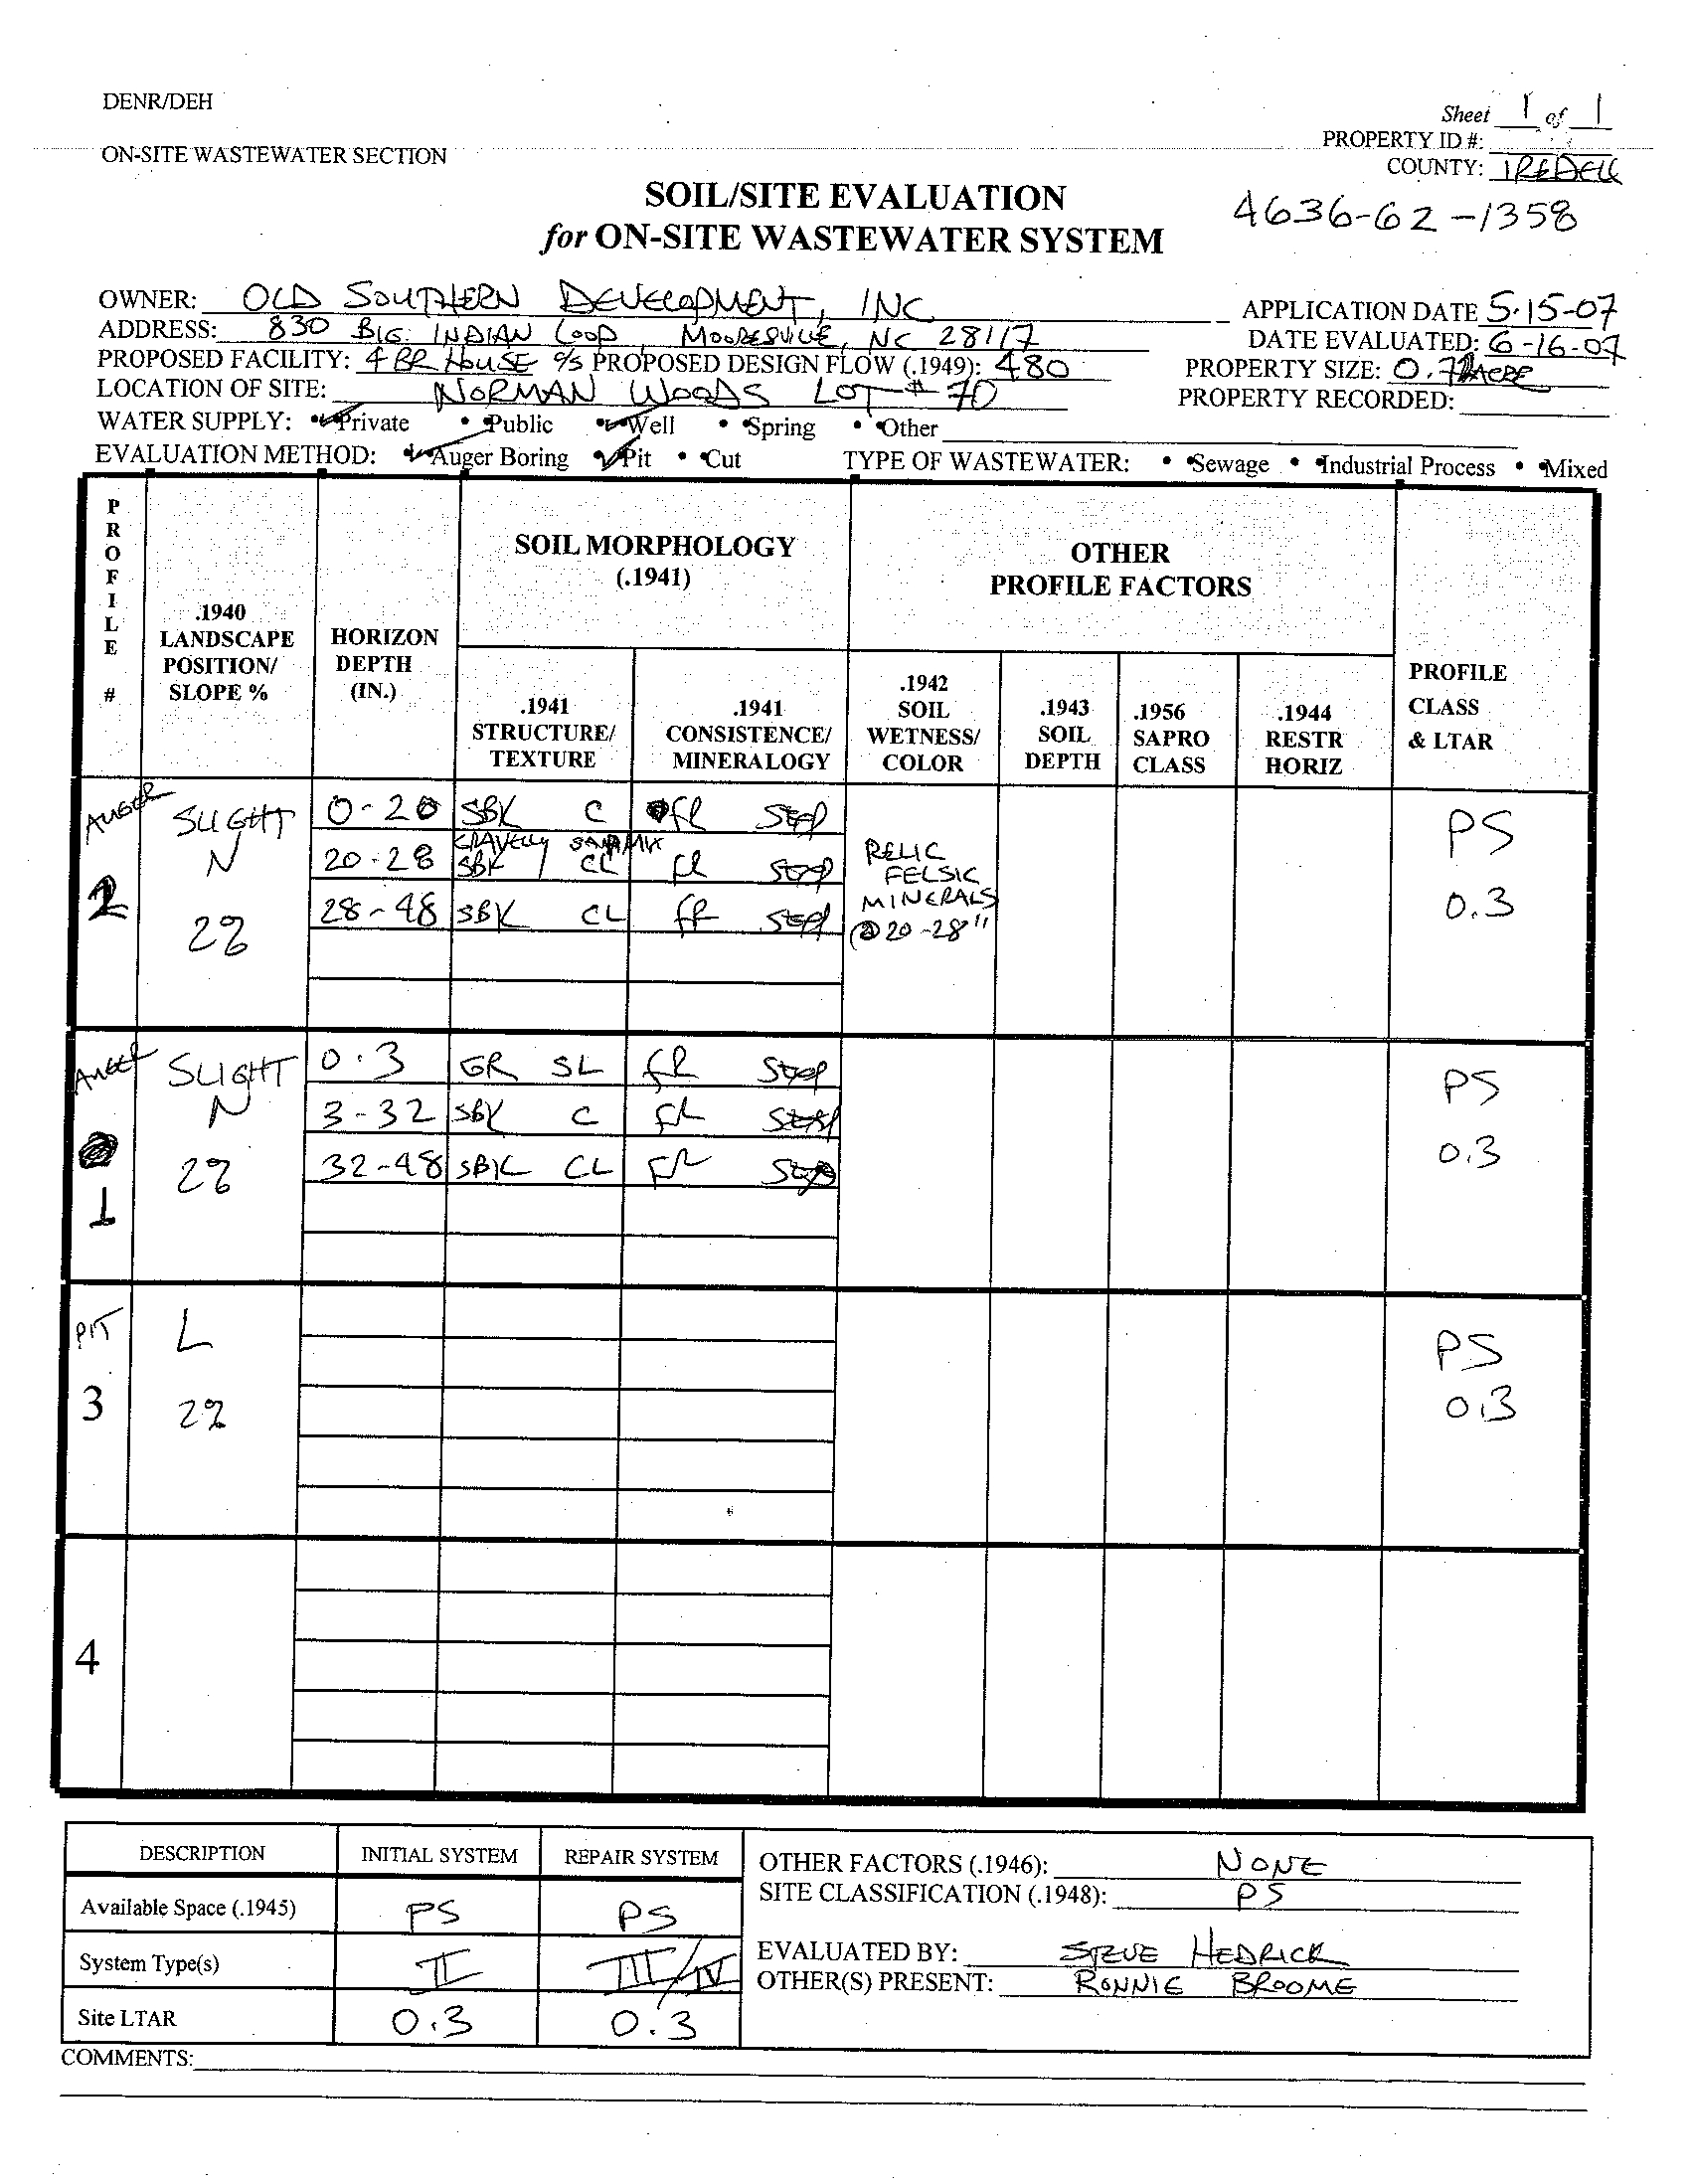 DENR/DEH
Sheet 1 of 1
PROPERTY ID #:
ON-SITE WASTEWATER SECTION
COUNTY: IREDELL
SOIL/SITE EVALUATION
for ON-SITE WASTEWATER SYSTEM
4636-62-1358
OWNER: OLD SOUTHERN DEVELOPMENT, INC
APPLICATION DATE 5-15-07
ADDRESS: 830 BIG INDIAN LOOP, MOORESVILLE, NC 28117
DATE EVALUATED: 6-16-07
PROPOSED FACILITY: 4 BR HOUSE PROPOSED DESIGN FLOW (.1949): 480
PROPERTY SIZE: ACRE
LOCATION OF SITE: NORMAN WOODS LOT # 70
PROPERTY RECORDED:
WATER SUPPLY: Private Public Well Spring Other
EVALUATION METHOD: Auger Boring Pit Cut TYPE OF WASTEWATER: Sewage Industrial Process Mixed
PROFILE #
.1940 LANDSCAPE POSITION/ SLOPE %
HORIZON DEPTH (IN.)
SOIL MORPHOLOGY (.1941)
.1941 STRUCTURE/ TEXTURE
.1941 CONSISTENCE/ MINERALOGY
OTHER PROFILE FACTORS
.1942 SOIL WETNESS/ COLOR
.1943 SOIL DEPTH
.1956 SAPRO CLASS
.1944 RESTR HORIZ
PROFILE CLASS & LTAR
AUGER 2
SLIGHT N 2%
0-20 SBK C FR
GRAVELLY
20-28 SBK CL FR
28-48 SBK CL FR
RELIC
FELSIC
MINERALS
@ 20-28"
PS
0.3
AUGER 1
SLIGHT N 2%
0-3 GR SL FR
3-32 SBK C FR
32-48 SBK CL FR
PS
0.3
PIT 3
L
2%
PS
0.3
4
DESCRIPTION INITIAL SYSTEM REPAIR SYSTEM
Available Space (.1945) PS PS
System Type(s) II III/IV
Site LTAR 0.3 0.3
OTHER FACTORS (.1946): NONE
SITE CLASSIFICATION (.1948): PS
EVALUATED BY: STEVE HEDRICK
OTHER(S) PRESENT: RONNIE BROOME
COMMENTS: